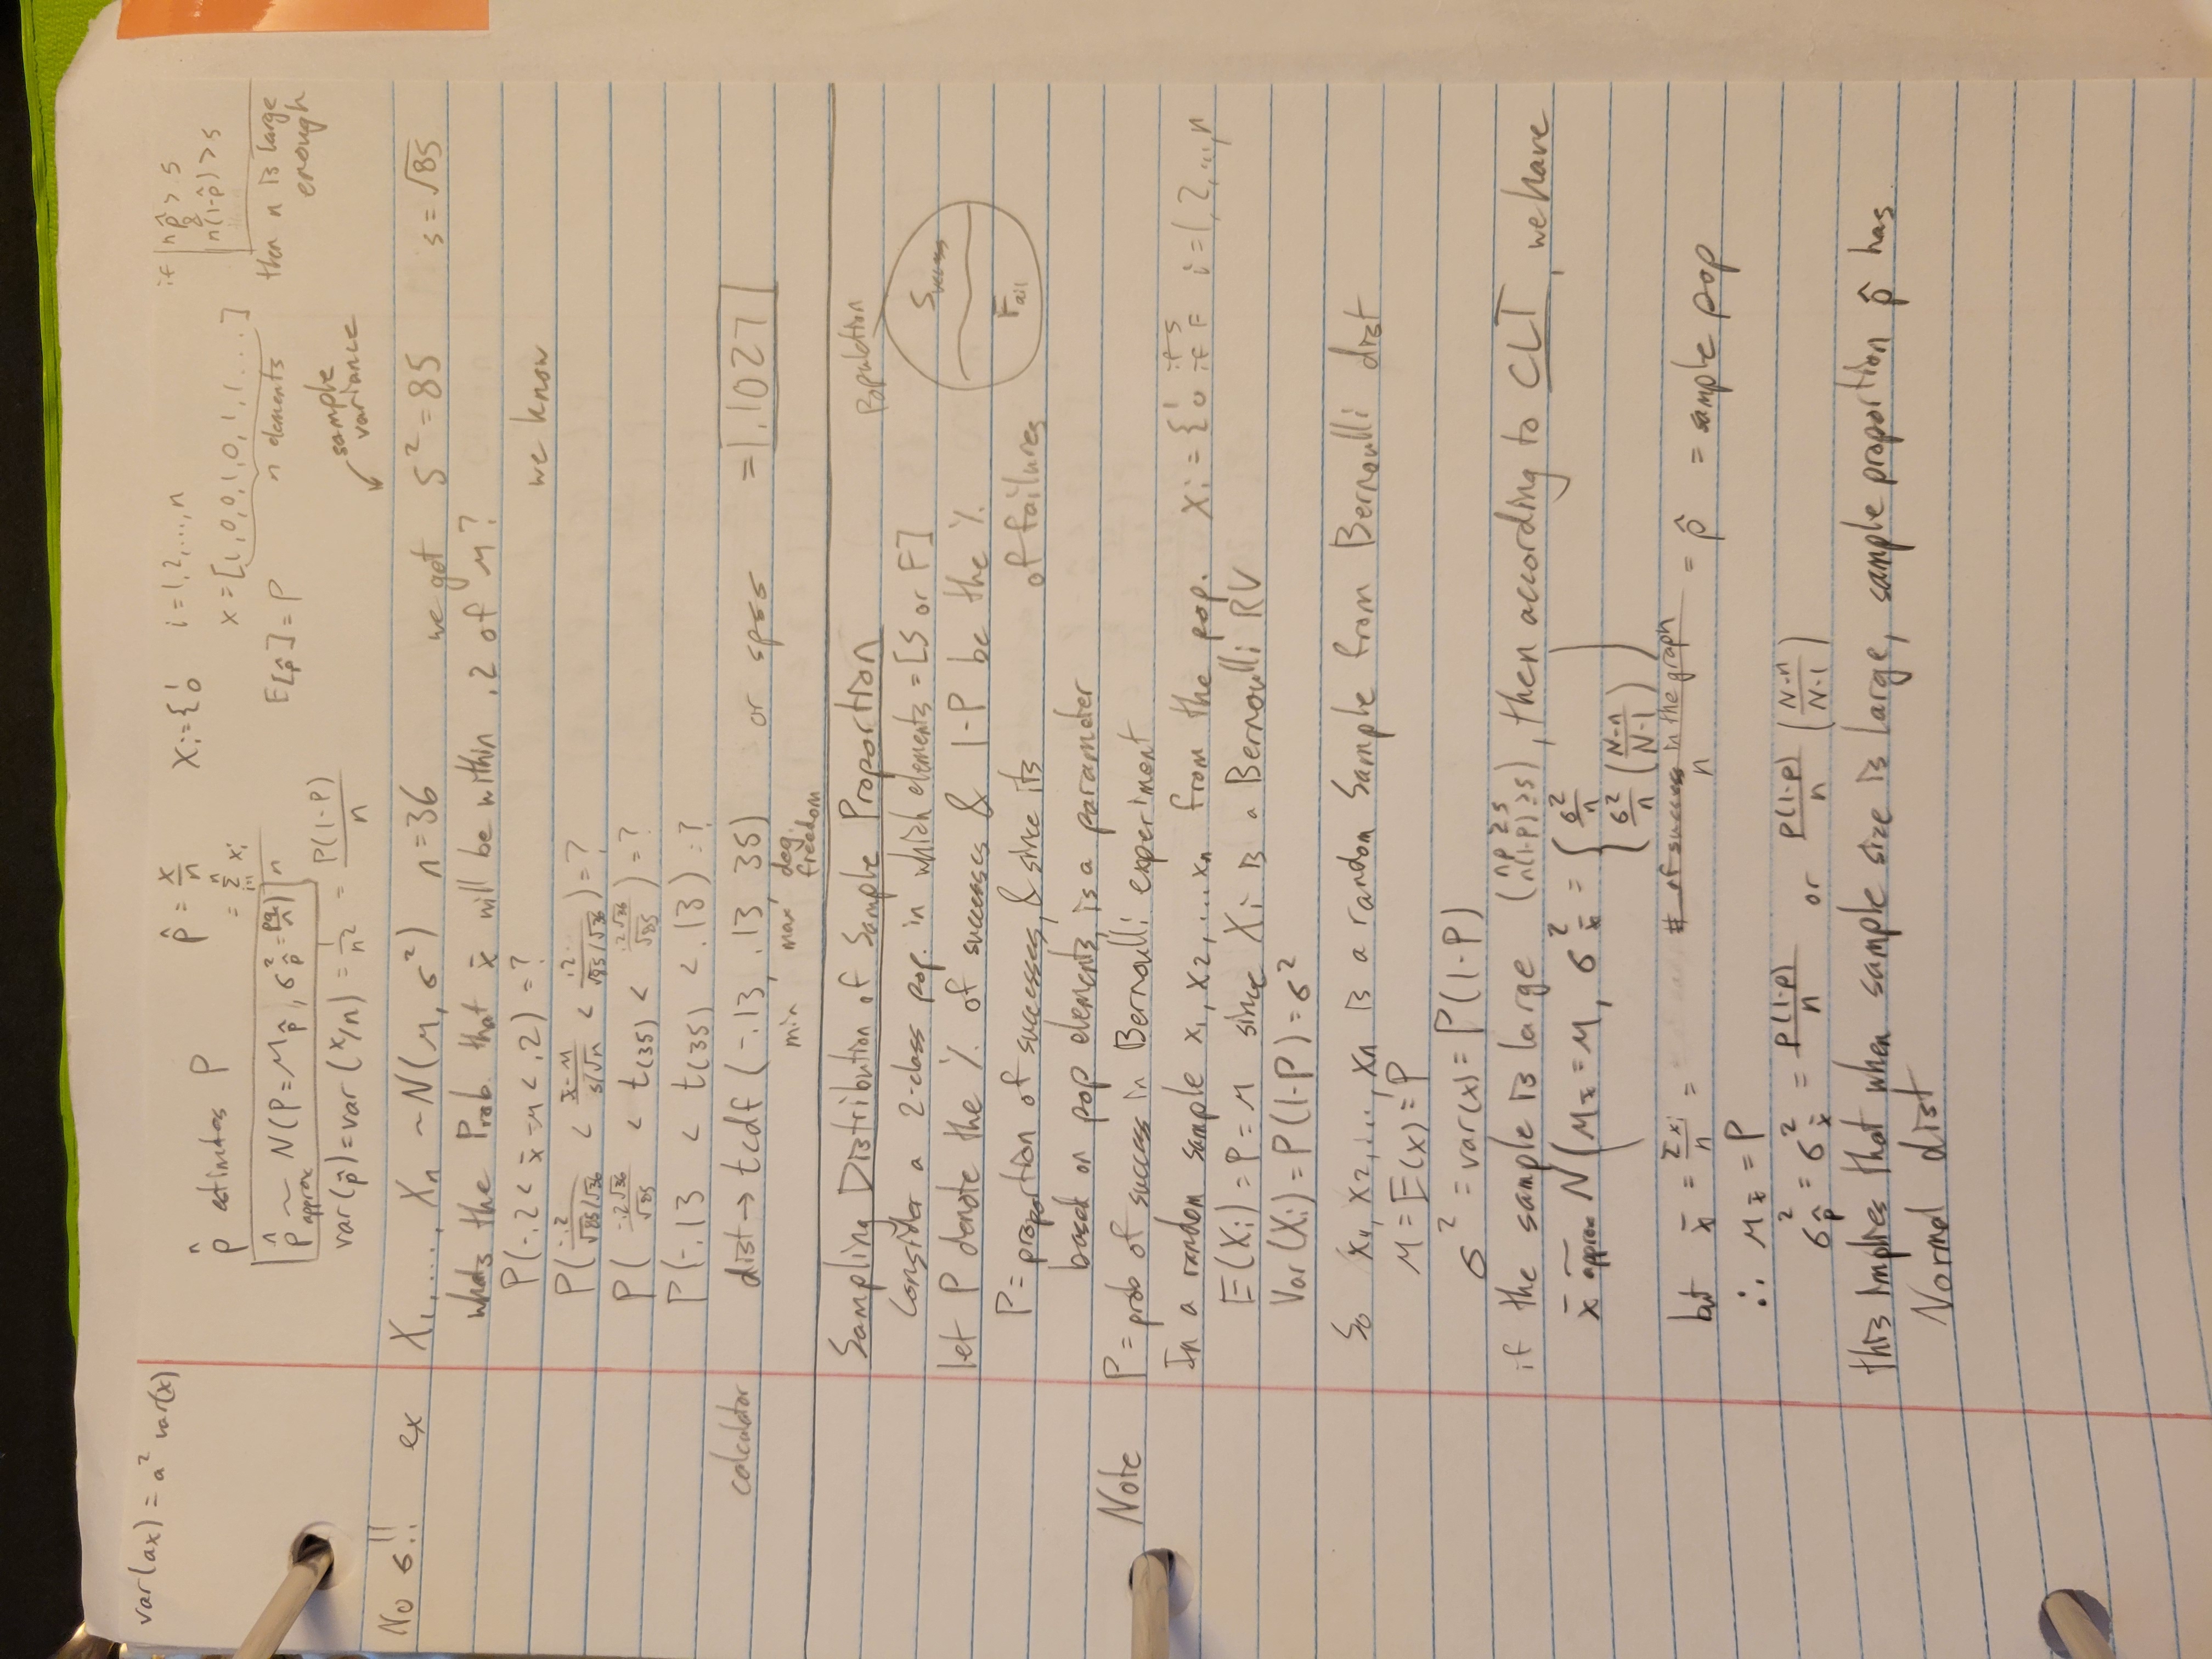 var(ax) = a² var(x)
p̂ estimates P
p̂ = x/n
= Σᵢ₌₁ⁿ xᵢ / n
Xᵢ = { 1 0 i = 1, 2, ..., n
x = [1, 0, 0, 1, 0, 1, 1 ....]
n elements
if np̂ > 5
&
n(1-p̂) > 5
then n is large
enough
p̂ ~ approx N(P = μ_p̂, σ²_p̂ = pq/n)
E[p̂] = P
var(p̂) = var(x/n) = 1/n² = P(1-P)/n
sample
variance
No σ!! ex X₁, ..., Xₙ ~ N(μ, σ²) n = 36 we got S² = 85 s = √85
whats the Prob. that x̄ will be within .2 of μ?
P(-.2 < x̄-μ < .2) = ? we know
P(-.2/(√85/√36) < (x̄-μ)/(s/√n) < .2/(√85/√36)) = ?
P(-.2√36/√85 < t(35) < .2√36/√85) = ?
P(-.13 < t(35) < .13) = ?
calculator dist → tcdf (-.13, .13, 35) or spss = .1027
min max deg.
freedom
Sampling Distribution of Sample Proportion
Population
Success
Fail
Consider a 2-class pop. in which elements = [S or F]
let P denote the % of successes & 1-P be the %
of failures
P = proportion of successes, & since its
based on pop elements, is a parameter
Note P = prob of success in Bernoulli experiment
In a random sample x₁, x₂, ... xₙ from the pop. Xᵢ = { 1 if S 0 if F i = 1, 2, ..., n
E(Xᵢ) = P = μ since Xᵢ is a Bernoulli RV
Var(Xᵢ) = P(1-P) = σ²
So x₁, x₂, ..., xₙ is a random Sample from Bernoulli dist
μ = E(x) = P
σ² = var(x) = P(1-P)
if the sample is large (np ≥ 5 n(1-P) ≥ 5), then according to CLT, we have
x̄ ~ approx N(μ_x̄ = μ, σ²_x̄ = { σ²/n
σ²/n ((N-n)/(N-1)) )
but x̄ = Σxᵢ/n = # of success in the graph / n = p̂ = sample pop
∴ μ_x̄ = P
σ²_p̂ = σ²_x̄ = p(1-p)/n or p(1-p)/n ((N-n)/(N-1))
this implies that when sample size is large, sample proportion p̂ has
Normal dist